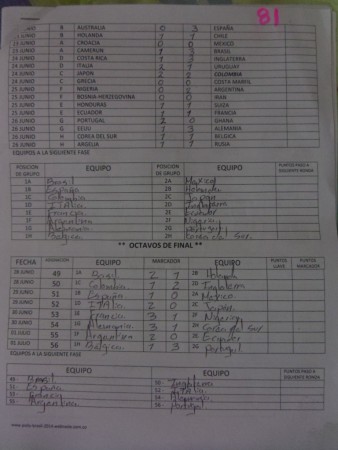 81
JUNIO B AUSTRALIA 0 3 ESPAÑA
JUNIO B HOLANDA 1 1 CHILE
23 JUNIO A CROACIA 0 0 MEXICO
23 JUNIO A CAMERÚN 1 3 BRASIL
24 JUNIO D COSTA RICA 1 3 INGLATERRA
24 JUNIO D ITALIA 2 1 URUGUAY
24 JUNIO C JAPON 2 2 COLOMBIA
24 JUNIO C GRECIA 0 0 COSTA MARFIL
25 JUNIO F NIGERIA 0 2 ARGENTINA
25 JUNIO F BOSNIA-HERZEGOVINA 0 0 IRAN
25 JUNIO E HONDURAS 1 1 SUIZA
25 JUNIO E ECUADOR 1 1 FRANCIA
26 JUNIO G PORTUGAL 2 0 GHANA
26 JUNIO G EEUU 1 3 ALEMANIA
26 JUNIO H COREA DEL SUR 1 1 BELGICA
26 JUNIO H ARGELIA 1 1 RUSIA
EQUIPOS A LA SIGUIENTE FASE
POSICION DE GRUPO EQUIPO POSICION DE GRUPO EQUIPO PUNTOS PASO A SIGUIENTE RONDA
1A Brasil 2A Mexico
1B España 2B Holanda
1C Colombia 2C Japon
1D ITALIA 2D Inglaterra
1E Francia 2E Ecuador
1F Argentina 2F Nigeria
1G Alemania 2G Portugal
1H Belgica 2H Corea del Sur
** OCTAVOS DE FINAL **
FECHA ASIGNACIÓN EQUIPO MARCADOR EQUIPO PUNTOS LLAVE PUNTOS MARCADOR
28 JUNIO 49 1A Brasil 2 1 2B Holanda
28 JUNIO 50 1C Colombia 1 2 2D Inglaterra
29 JUNIO 51 1B España 1 0 2A Mexico
29 JUNIO 52 1D ITALIA 2 0 2C Japon
30 JUNIO 53 1E Francia 3 1 2F Nigeria
30 JUNIO 54 1G Alemania 3 1 2H Corea del Sur
01 JULIO 55 1F Argentina 2 0 2E Ecuador
01 JULIO 56 1H Belgica 1 3 2G Portugal
EQUIPOS A LA SIGUIENTE FASE
EQUIPO EQUIPO PUNTOS PASO A SIGUIENTE RONDA
49 - Brasil 50 - Inglaterra
51 - España 52 - ITALIA
53 - Francia 54 - Alemania
55 - Argentina 56 - Portugal